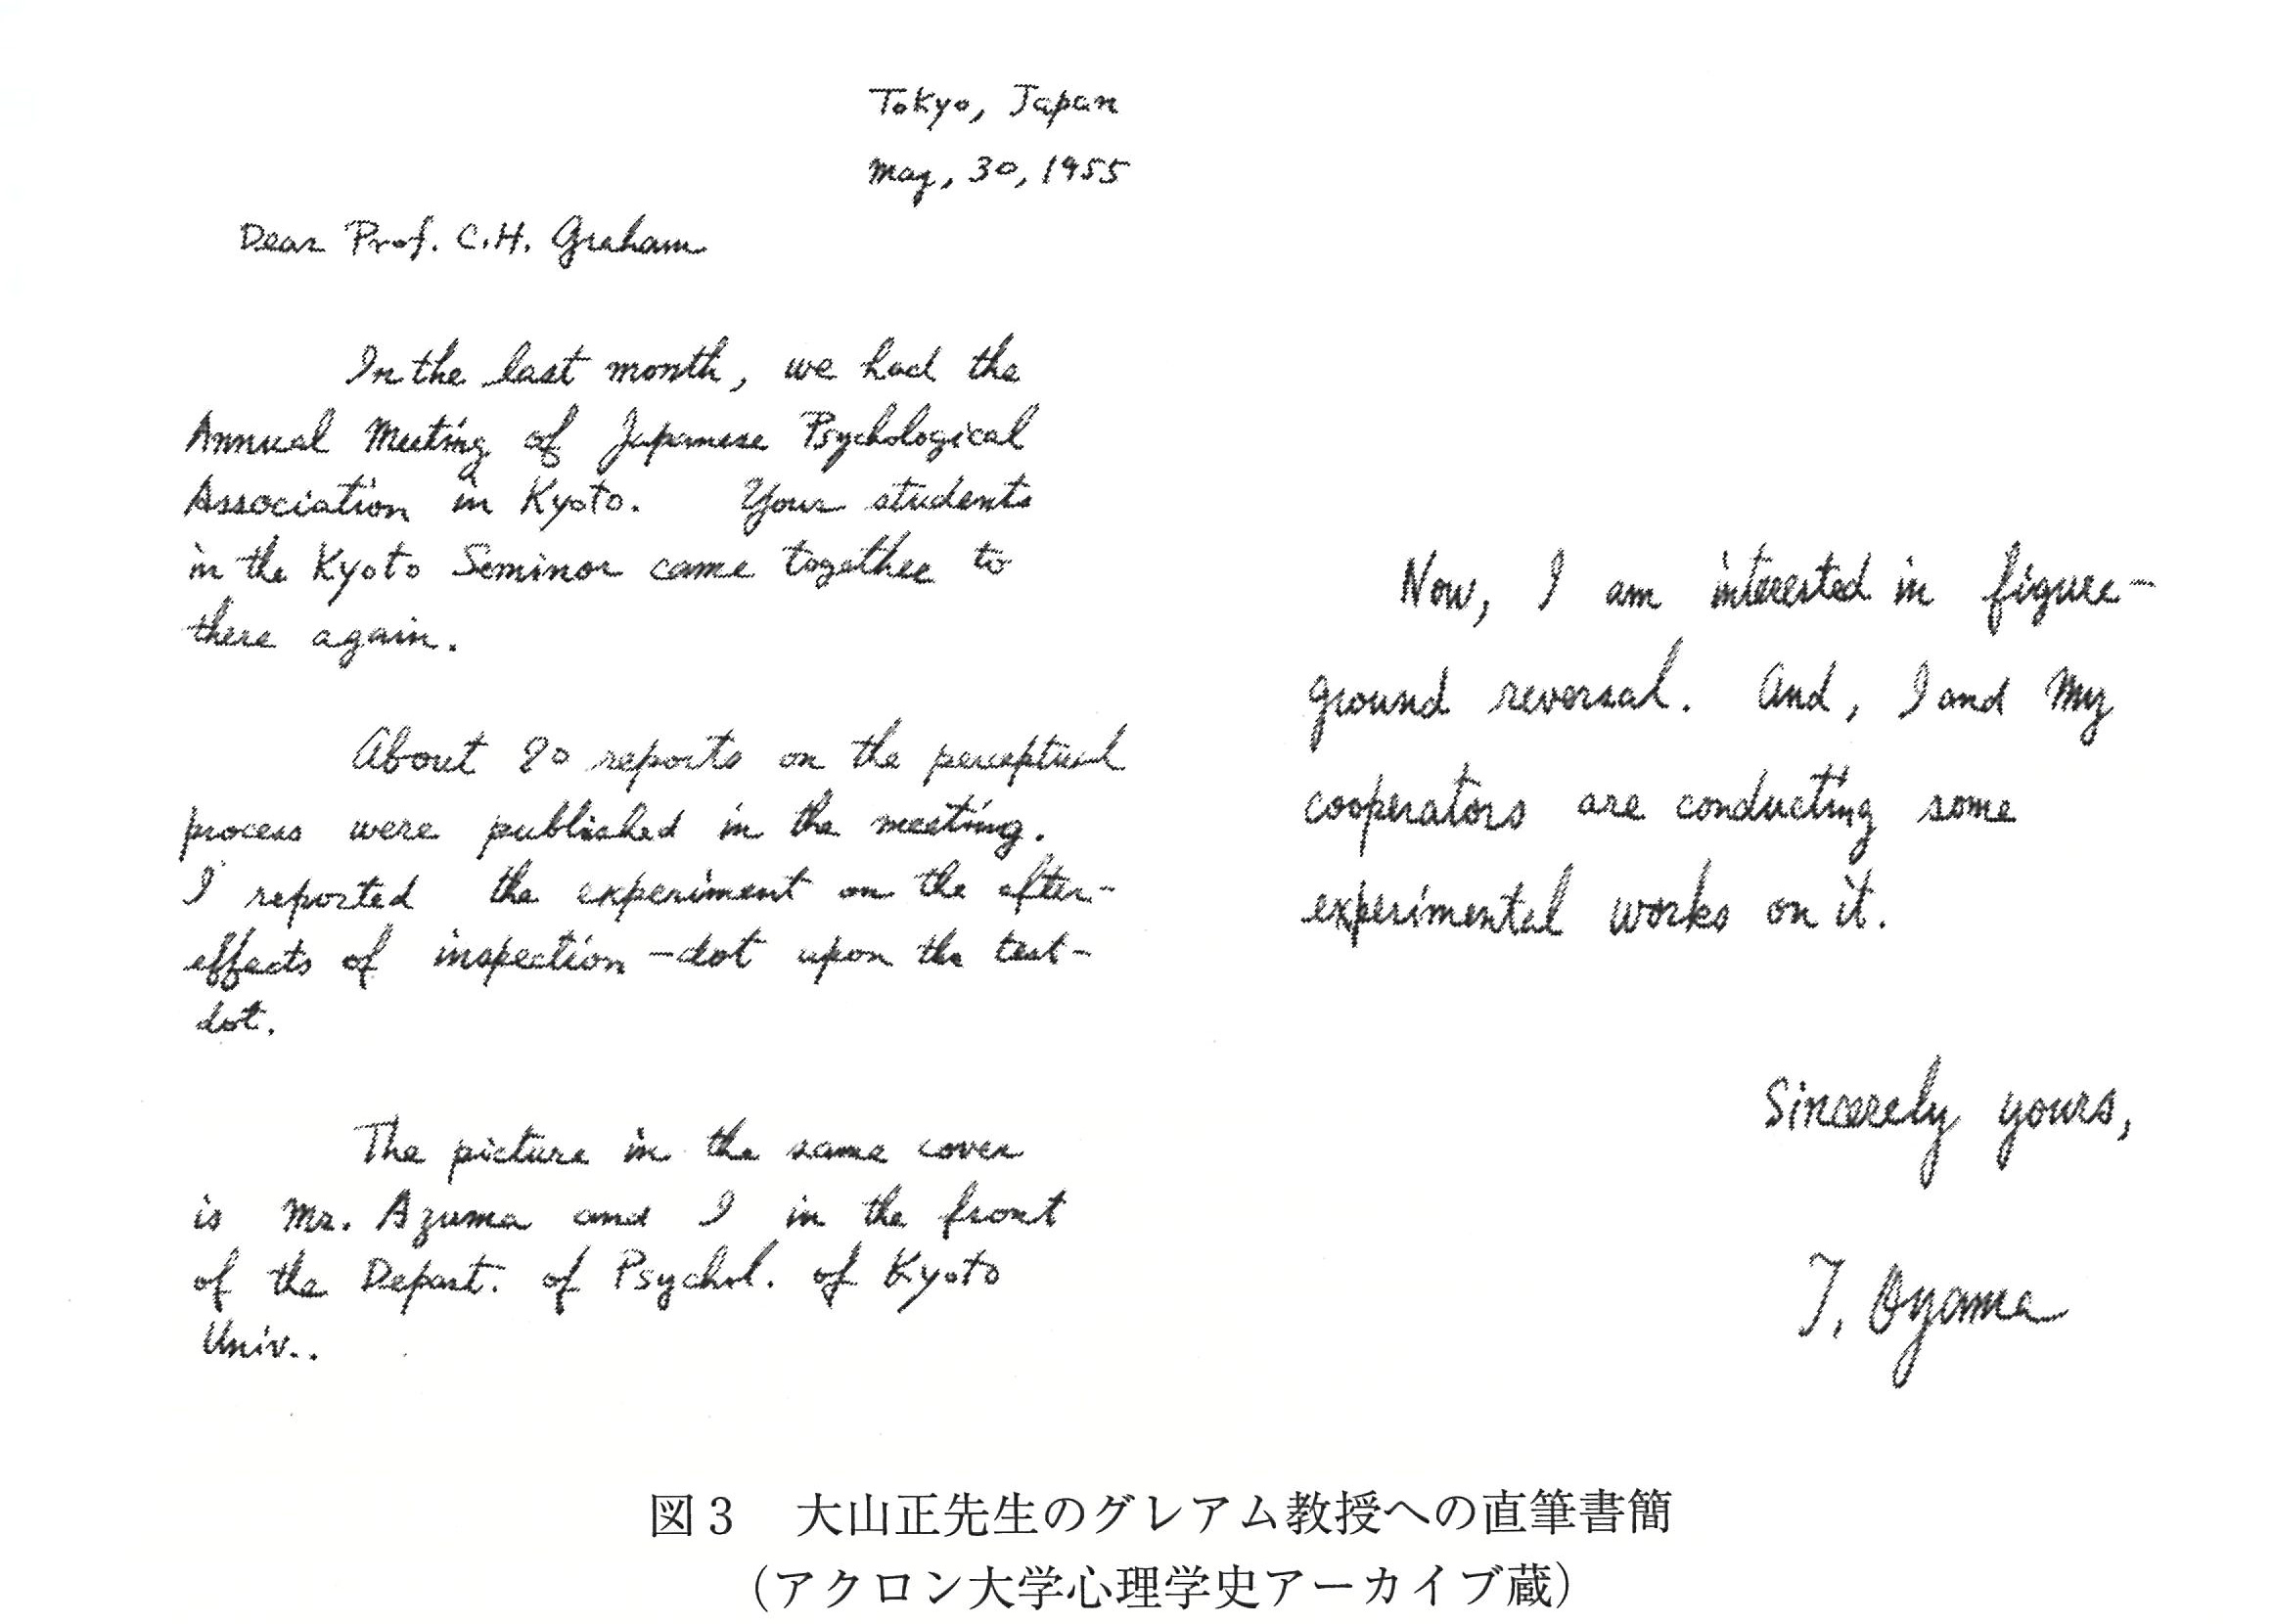 Tokyo, Japan
May, 30, 1955
Dear Prof. C.H. Graham
In the last month, we had the
Annual Meeting of Japanese Psychological
Association in Kyoto. Your students
in the Kyoto Seminor came together to
there again.
About 80 reports on the perceptual
process were published in the meeting.
I reported the experiment on the after-
effects of inspection-dot upon the test-
dot.
The picture in the same cover
is Mr. Azuma and I in the front
of the Depart. of Psychol. of Kyoto
Univ..
Now, I am interested in figure-
ground reversal. And, I and My
cooperators are conducting some
experimental works on it.
Sincerely yours,
T. Oyama
図3 大山正先生のグレアム教授への直筆書簡
（アクロン大学心理学史アーカイブ蔵）